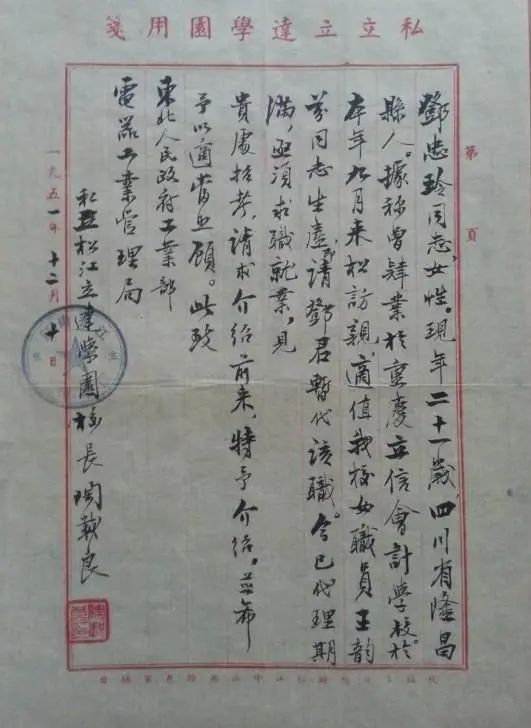 私立立達學園用箋
第 頁
鄧忠玲同志,女性。現年二十一歲,四川省隆昌
縣人。據稱曾肄業於重慶立信會計學校。於
本年九月来松訪親,適值我校女職員王韵
芬同志生產,即請鄧君暫代該職。今已代理期
滿,亟須求職就業,見
貴處招考,請求介紹前来,特予介紹。並希
予以適當照顧。此致
東北人民政府工業部
電器工業管理局
私立松江立達學園校長陶載良
一九五一年十二月十日